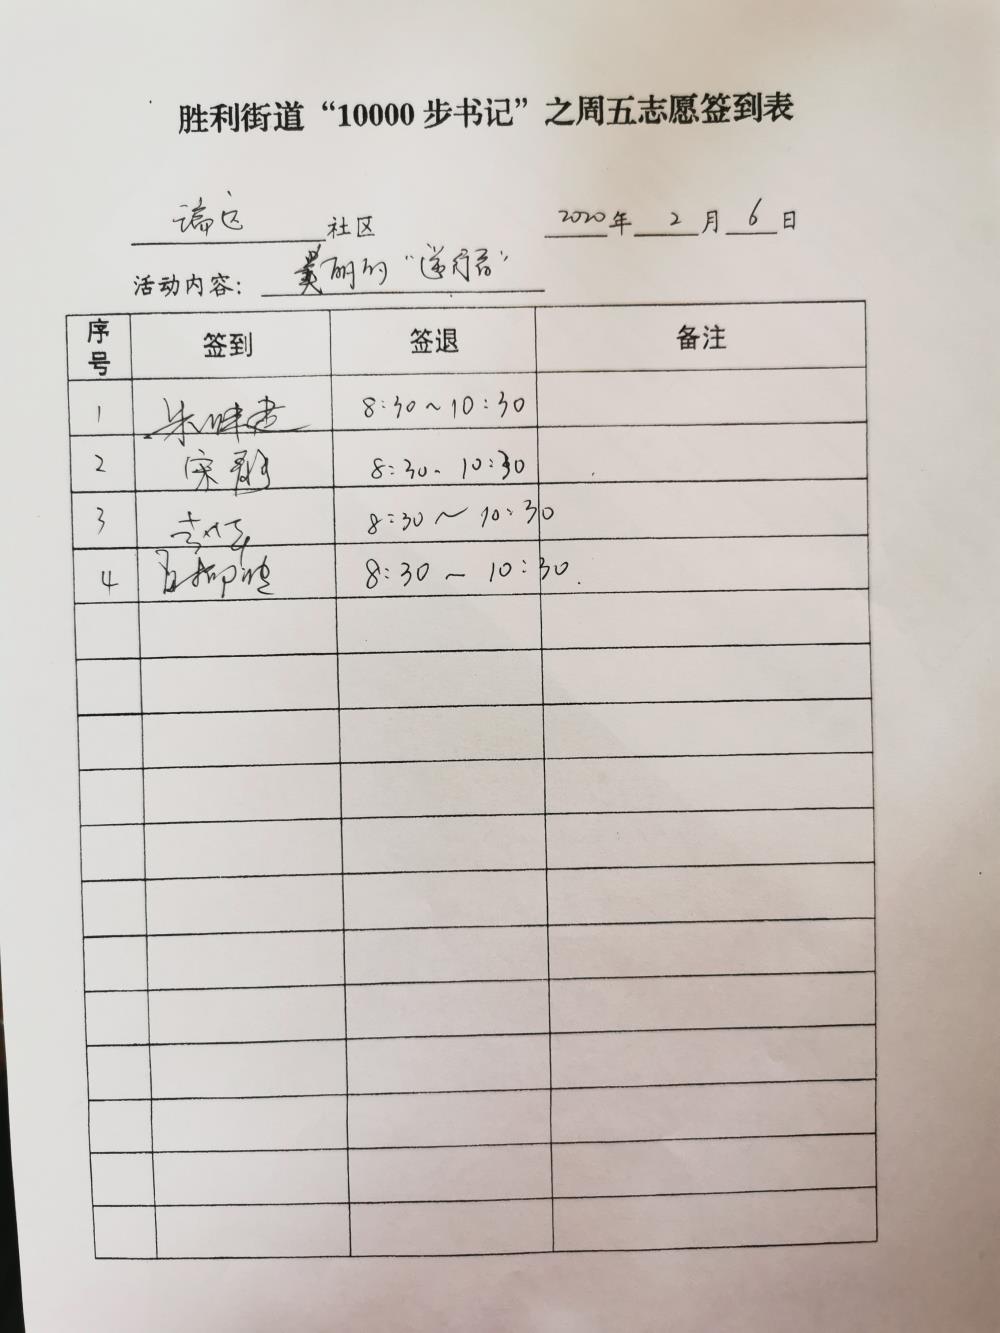 胜利街道“10000步书记”之周五志愿签到表
社区 2020年 2月 6日
活动内容: 美丽的“送行者”
序号 签到 签退 备注
1 8:30~10:30
2 宋 8:30- 10:30
3 8:30~10:30
4 8:30~10:30.